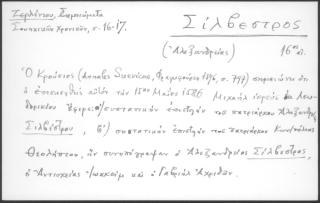 Ζερλέντου, Σημειώματα
Σιναϊτικῶν Χρονικῶν, σ. 16-17.
Σίλβεστρος
(Ἀλεξανδρείας) 16ος αἰ.
Ὁ Κρούσιος (Annales Suevicae, 1596, σ. 797) σημειώνει ὅτι
ὁ ἐπισκεφθεὶς αὐτὸν τὴν 15ην Μαΐου 1586 Μιχαὴλ ἱερεὺς
ἔφερε: α) συστατικὴν ἐπιστολὴν τοῦ πατριάρχου Ἀλεξανδρείας
Σιλβέστρου, β) συστατικὴν ἐπιστολὴν τοῦ πατριάρχου Κων)πόλεως
Θεολήπτου, ἣν συνυπέγραψαν ὁ Ἀλεξανδρείας Σίλβεστρος,
ὁ Ἀντιοχείας Ἰωακεὶμ καὶ ὁ Γαβριὴλ Ἀχριδῶν.